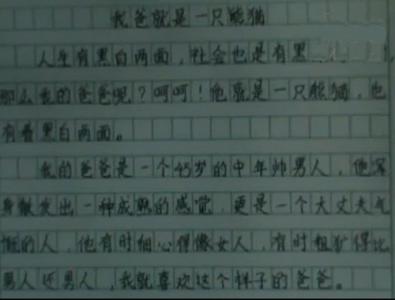 我爸就是一只熊猫
人生有黑白两面，社会也是有黑
那么我的爸爸呢？呵呵！他就是一只熊猫，也
有着黑白两面。
我的爸爸是一个45岁的中年帅男人，他浑
身散发出一种成熟的感觉，更是一个大丈夫气
慨的人，他有时细心得像女人，有时粗犷得比
男人还男人，我就喜欢这个样子的爸爸。